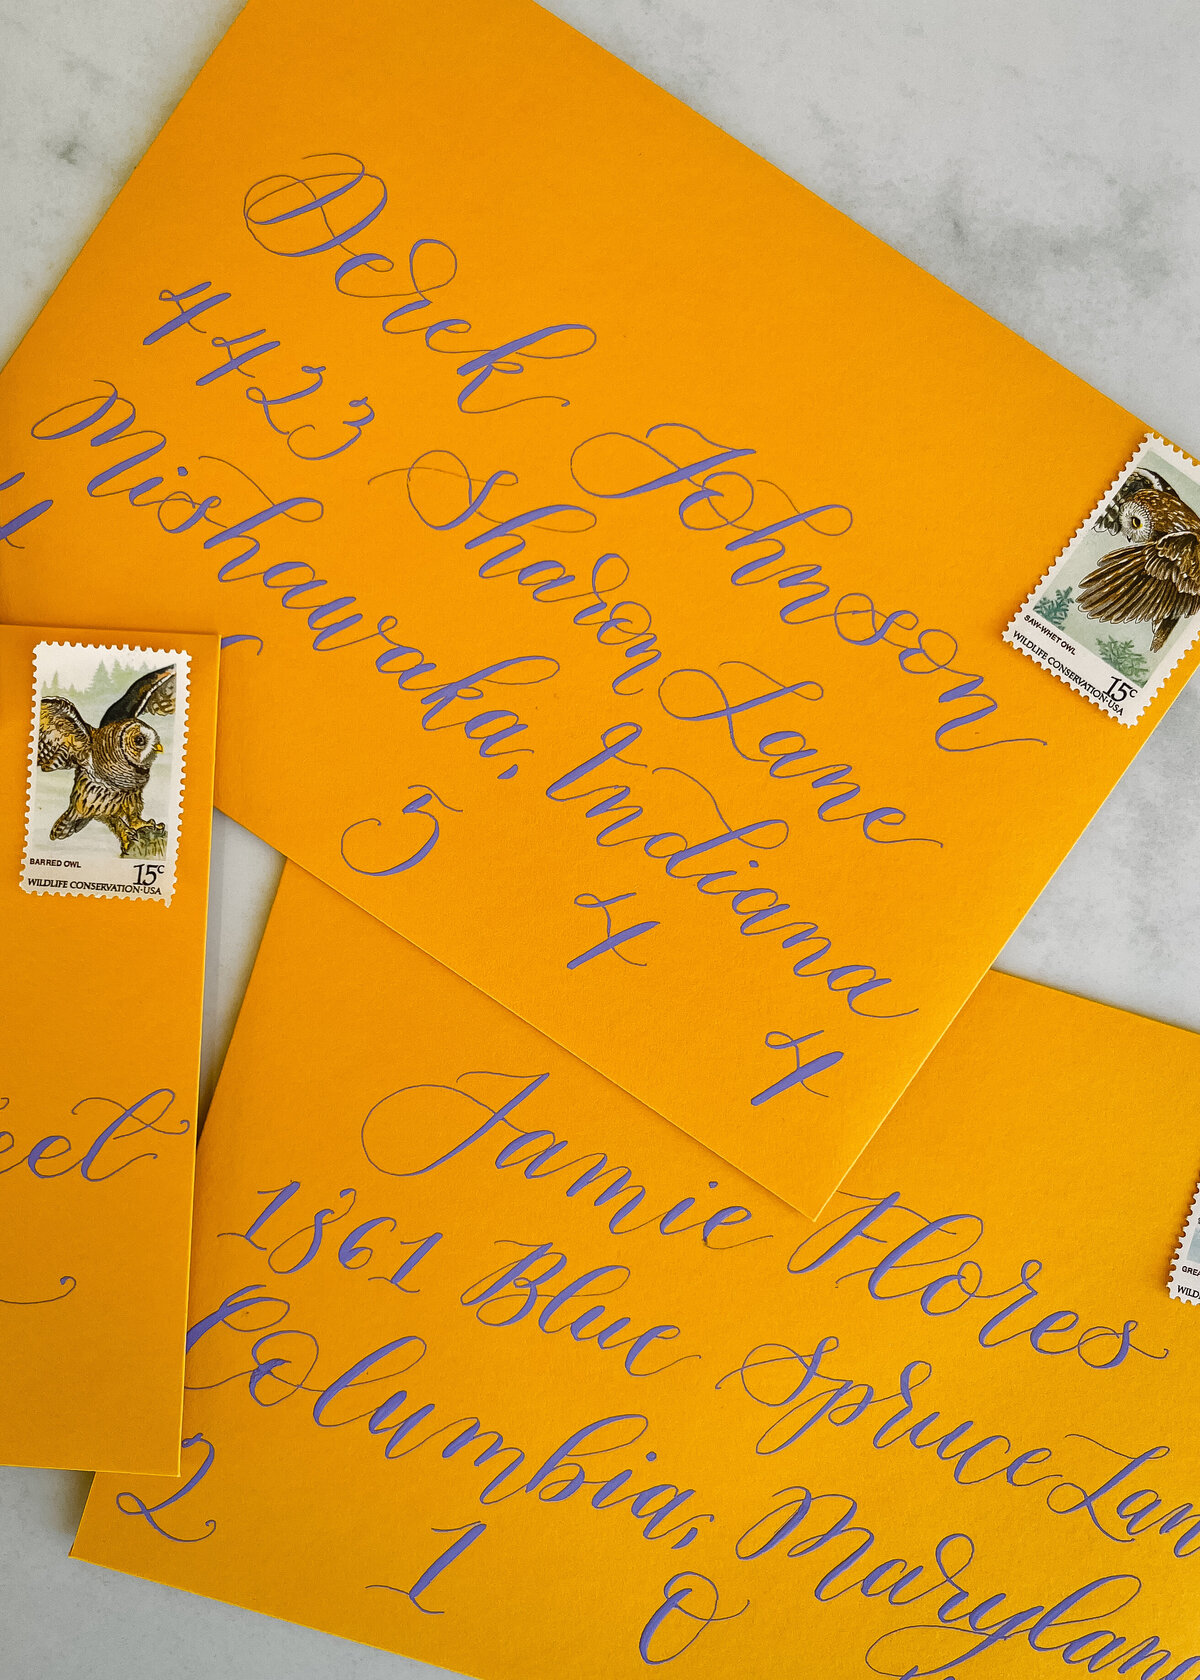 Derek Johnson
4423 Sharon Lane
Mishawaka, Indiana
4 5 4 4
SAW-WHET OWL
15c
WILDLIFE CONSERVATION·USA
BARRED OWL
15c
WILDLIFE CONSERVATION·USA
eet
Jamie Flores
1861 Blue Spruce Lan
Columbia, Marylan
2 1 0
GREA
WILD